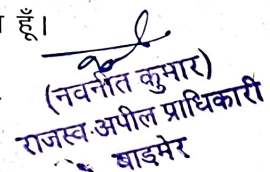 हूँ।
(नवनीत कुमार)
राजस्व अपील प्राधिकारी
बाड़मेर